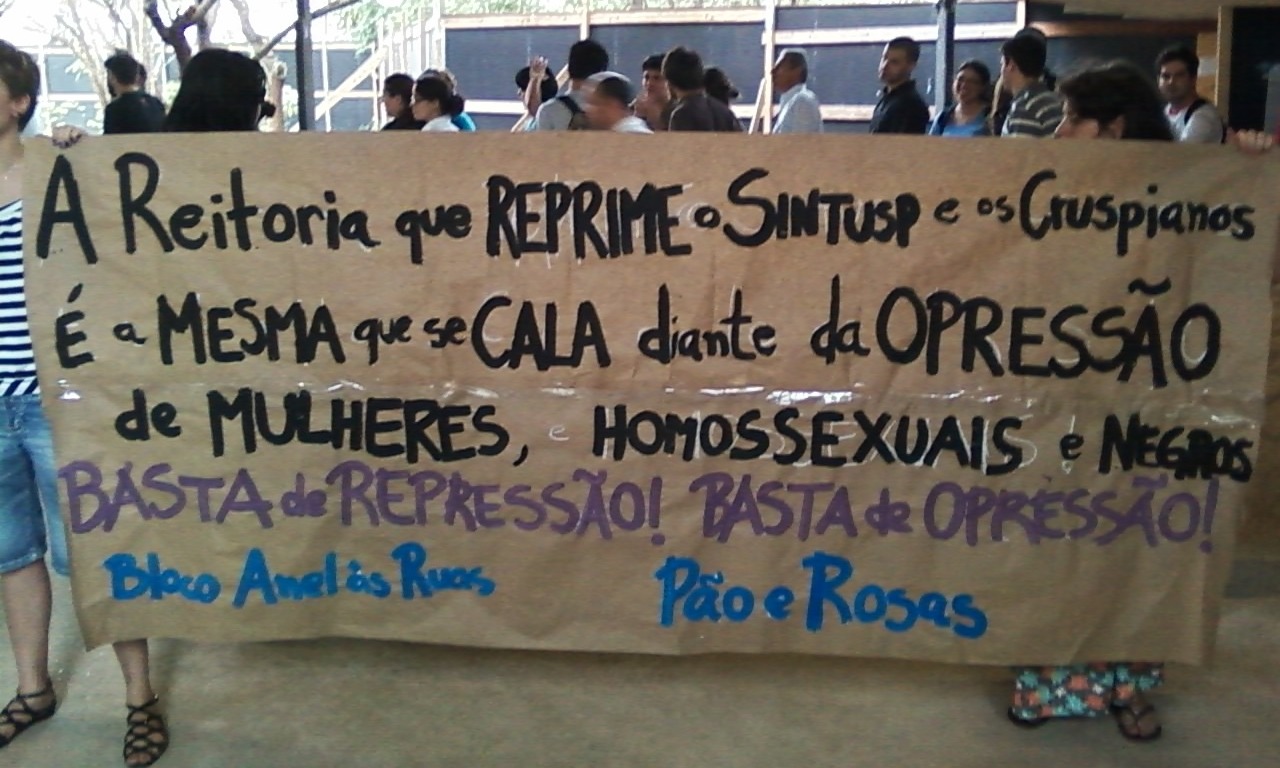 A Reitoria que REPRIME o SINTUSP e os Cruspianos
É a MESMA que se CALA diante da OPRESSÃO
de MULHERES, e HOMOSSEXUAIS e NEGROS
BASTA de REPRESSÃO! BASTA de OPRESSÃO!
Bloco Anel às Ruas Pão e Rosas